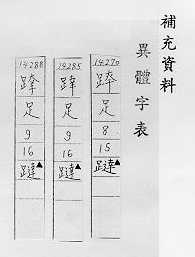 補充資料
異體字表
14270
足
8
15
躂▲
14285
足
9
16
躂▲
14288
足
9
16
躂▲